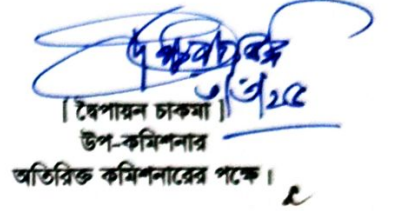 ৩/৩/২৫
[ দ্বৈপায়ন চাকমা ]
উপ-কমিশনার
অতিরিক্ত কমিশনারের পক্ষে।